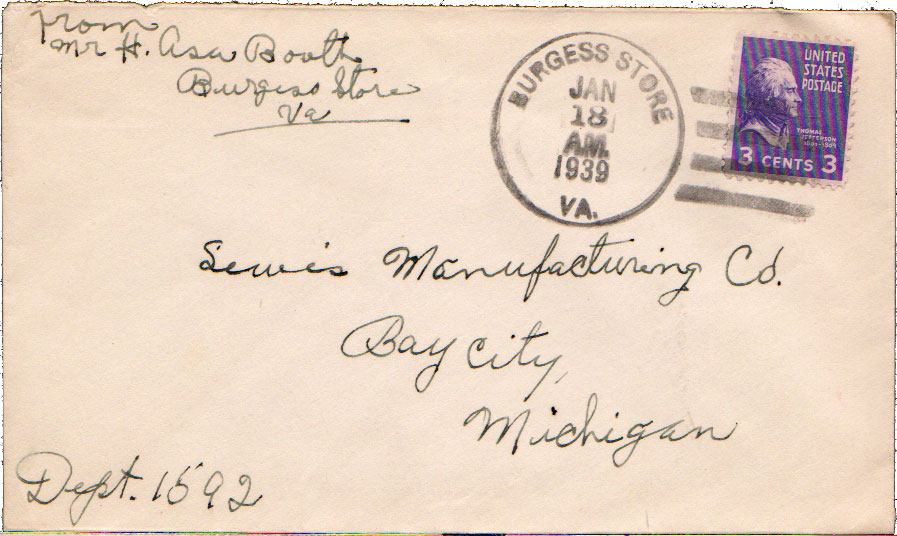 From
Mr H. Asa Booth
Burgess Store
Va
BURGESS STORE
JAN
18
AM.
1939
VA.
UNITED
STATES
POSTAGE
THOMAS
JEFFERSON
3 CENTS 3
Lewis Manufacturing Co.
Bay City,
Michigan
Dept. 1592